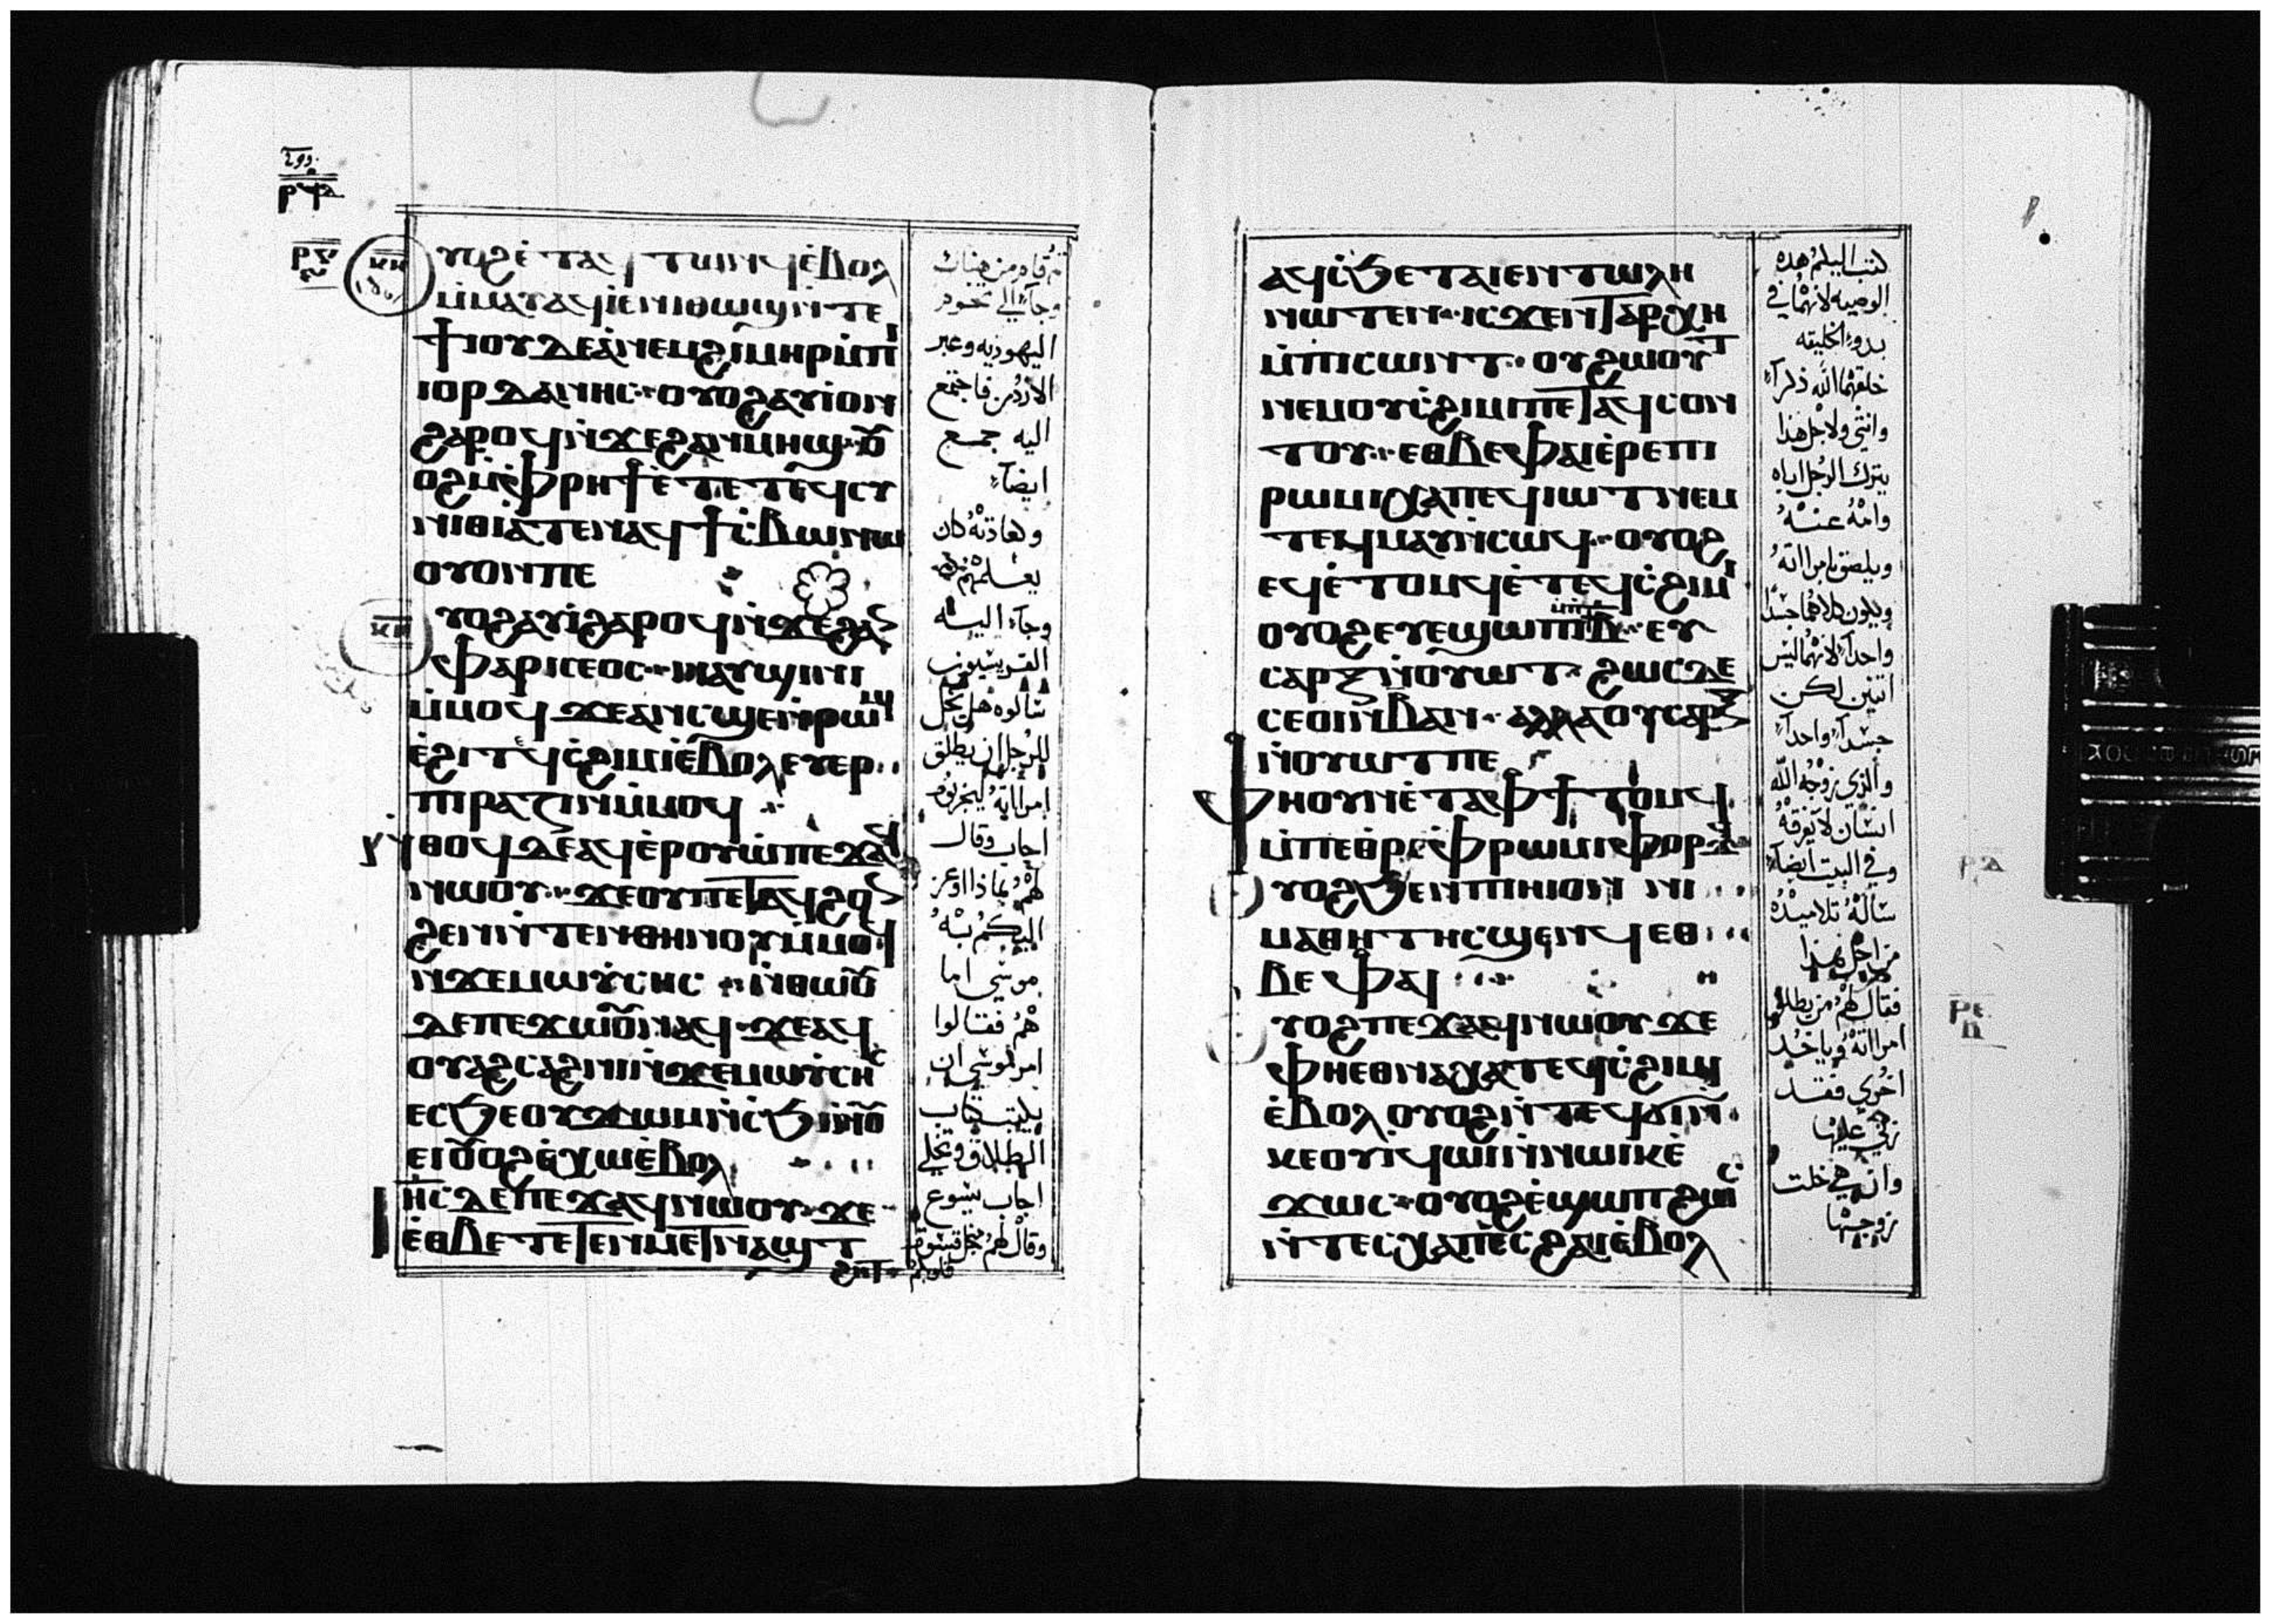 ⲣⲝ
ⲕⲏ
ⲩⲟϩ ⲉ̀ⲧⲁϥ ⲧⲱⲛϥ ⲉ̀ⲃⲟⲗ
ⲙ̀ⲙⲁⲩ ⲁϥⲓ̀ ⲉ̀ⲛⲓⲑⲱϣ ⲛ̀ⲧⲉ
ϯⲓⲟⲩⲇⲉⲁ̀ ⲛⲉⲙ ϩⲓⲙⲏⲣ ⲙ̀ⲡⲓ
ⲓⲟⲣⲇⲁⲛⲏⲥ ⲟⲩⲟϩ ⲁⲩⲓ̀ ⲟⲛ
ϩⲁⲣⲟϥ ⲛ̀ϫⲉ ϩⲁⲛⲙⲏϣ ⲟⲩ
ⲟϩ ⲙ̀ⲫⲣⲏϯ ⲉ̀ⲧⲉ ⲧⲉϥⲥⲩ
ⲛⲏⲑⲓⲁ ⲧⲉ ⲛⲁϥϯⲥ̀ⲃⲱ ⲛⲱ
ⲟⲩ ⲟⲛ ⲡⲉ
ⲕⲏ
ⲩⲟϩ ⲁⲩⲓ̀ ϩⲁⲣⲟϥ ⲛ̀ϫⲉ ϩⲁⲛ
ⲫⲁⲣⲓⲥⲉⲟⲥ ⲛⲁⲩϣⲓⲛⲓ
ⲙ̀ⲙⲟϥ ϫⲉ ⲁⲛ ⲥϣⲉ ⲛ̀ⲣⲱⲙⲓ
ⲉ̀ϩⲓ ⲧⲉϥⲥ̀ϩⲓⲙⲓ ⲉ̀ⲃⲟⲗ ⲉⲩⲉⲣ
ⲡⲓⲣⲁⲍⲓⲛ ⲙ̀ⲙⲟϥ
ⲛ̀ⲑⲟϥ ⲇⲉ ⲁϥⲉ̀ⲣⲟⲩⲱ̀ ⲡⲉϫⲁϥ
ⲛⲱⲟⲩ ϫⲉ ⲟⲩ ⲡⲉⲧⲁϥϩⲟⲛ
ϩⲉⲛ ⲛ̀ⲧⲉⲛ ⲑⲏⲛⲟⲩ ⲙ̀ⲙⲟϥ
ⲛ̀ϫⲉ ⲙⲱⲩ̀ⲥⲏⲥ ⲛ̀ⲑⲱⲟⲩ
ⲇⲉ ⲡⲉϫⲱⲟⲩ ⲛⲁϥ ϫⲉ ⲁϥ
ⲟⲩⲁϩⲥⲁϩⲛⲓ ⲛ̀ϫⲉ ⲙⲱⲩ̀ⲥⲏⲥ
ⲉⲥϧⲉ ⲟⲩϫⲱⲙ ⲛ̀ⲥϧⲓ ⲛ̀ⲟⲩ
ⲉⲓ ⲟⲩⲟϩ ⲉ̀ⲭⲱ ⲉ̀ⲃⲟⲗ
ⲓⲏⲥ ⲇⲉ ⲡⲉϫⲁϥ ⲛⲱⲟⲩ ϫⲉ
ⲉⲑⲃⲉ ⲧⲉⲧⲉⲛⲙⲉⲧⲛⲁϣⲧ
ϩⲏⲧ
ثم قام من هناك
وجاء الي تخوم
اليهوديه وعبر
الاردن فاجتمع
اليه جمع
ايضا
وكعادته كان
يعلمهم
وجاء اليه
الفريسيون
سالوه هل يحل
للرجل ان يطلق
امراته ليجربوه
اجاب وقال
لهم بماذا اوعز
اليكم به
موسي اما
هم فقالوا
امر موسي ان
يكتب كتاب
الطلاق وتخلي
اجاب يسوع
وقال لهم من اجل قسوة
قلوبكم
ⲁϥⲥϧⲉ ⲧⲁⲓⲉⲛⲧⲱⲗⲏ
ⲛⲱⲧⲉⲛ ⲓⲥϫⲉⲛ ⲧⲁⲣⲭⲏ
ⲙ̀ⲡⲓⲥⲱⲛⲧ ⲟⲩϩⲱⲟⲩⲧ
ⲛⲉⲙ ⲟⲩⲥ̀ϩⲓⲙⲓ ⲡⲉⲧⲁϥⲥⲟⲛ
ⲧⲟⲩ ⲉⲑⲃⲉ ⲫⲁⲓ ⲉ̀ⲣⲉ ⲡⲓ
ⲣⲱⲙⲓ ⲭⲁ ⲡⲉϥⲓⲱⲧ ⲛⲉⲙ
ⲧⲉϥⲙⲁⲩ ⲛ̀ⲥⲱϥ ⲟⲩⲟϩ
ⲉϥⲉ̀ⲧⲟⲙϥ ⲉ̀ⲧⲉϥⲥ̀ϩⲓⲙⲓ
ⲟⲩⲟϩ ⲉⲩⲉϣⲱⲡⲓ ⲙ̀ⲡⲃ̅ ⲉⲩ
ⲥⲁⲣⲝ ⲛ̀ⲟⲩⲱⲧ ϩⲱⲥⲇⲉ
ⲥⲉⲟⲓ ⲛ̀ⲃ ⲁⲛ ⲁⲗⲗⲁ ⲟⲩⲥⲁⲣⲝ
ⲛ̀ⲟⲩⲱⲧ ⲡⲉ
ⲫⲏ ⲟⲩⲛ ⲉ̀ⲧⲁ ⲫϯ ⲧⲟⲙϥ
ⲙ̀ⲡⲉⲑⲣⲉ ⲫⲣⲱⲙⲓ ⲫⲟⲣϫϥ
ⲩⲟϩ ϧⲉⲛ ⲡⲓⲏⲓ ⲟⲛ ⲛⲓ
ⲙⲁⲑⲏⲧⲏⲥ ϣⲉⲛϥ ⲉⲑ
ⲃⲉ ⲫⲁⲓ
ⲩⲟϩ ⲡⲉϫⲁϥ ⲛⲱⲟⲩ ϫⲉ
ⲫⲏ ⲉⲑⲛⲁⲭⲁ ⲧⲉϥⲥ̀ϩⲓⲙⲓ
ⲉ̀ⲃⲟⲗ ⲟⲩⲟϩ ⲛ̀ⲧⲉϥϭⲓ ⲛ̀
ⲕⲉⲟⲩⲓ̀ ϥⲱⲓ ⲛ̀ⲛⲱⲓⲕ ⲉ̀
ϫⲱⲥ ⲟⲩⲟϩ ⲉ̀ϣⲱⲡ ϩⲱⲥ
ⲛ̀ⲧⲉⲥⲭⲁ ⲡⲉⲥϩⲁⲓ ⲉ̀ⲃⲟⲗ
كتب اليكم هذه
الوصيه لانهما في
بدو الخليقه
خلقهما الله ذكرا
وانثي ولاجل هذا
يترك الرجل اباه
وامه عنه
ويلصق بامراته
ويكون كلاهما جسدا
واحدا لانهما ليس
اثنين لكن
جسدا واحدا
والذي زوجه الله
انسان لا يفرقه
وفي البيت ايضا
ساله تلاميذه
من اجل هذا
فقال لهم من يطلق
امراته وياخد
اخري فقد
زني عليها
وان هي خلت
زوجها
ⲣⲉ
ⲡ